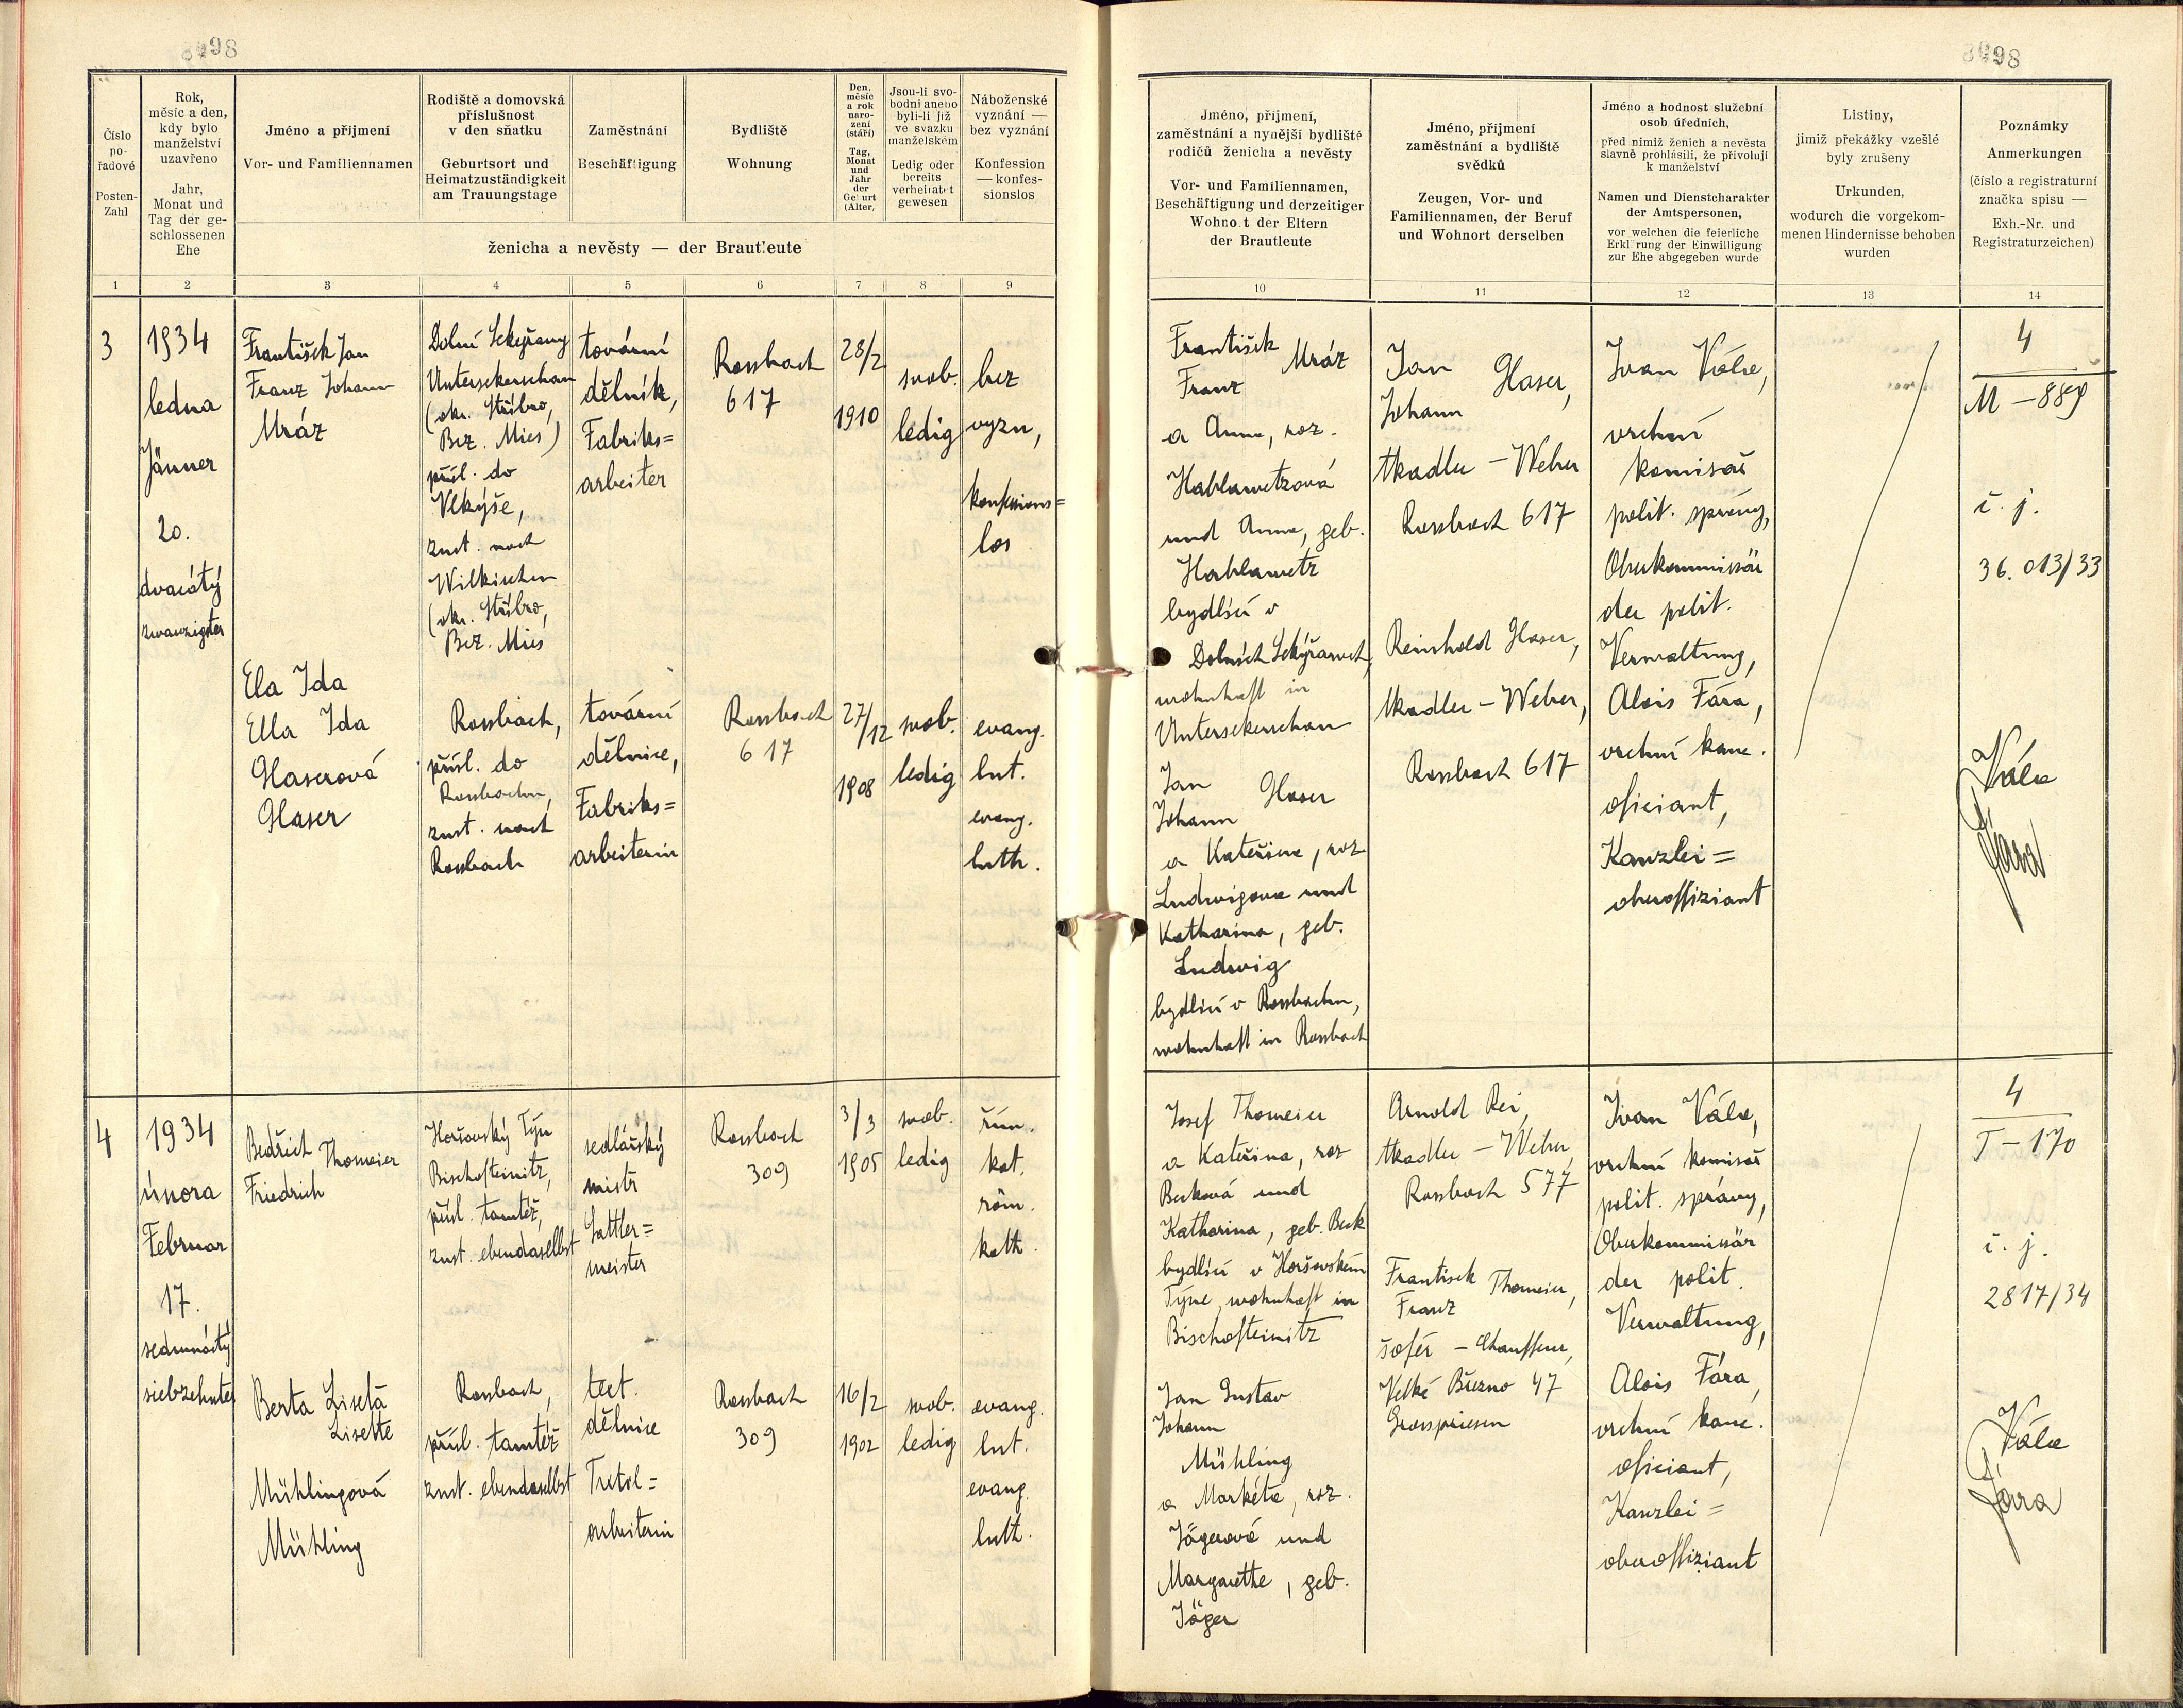 8098
8098
Číslo
po-
řadové
Posten-
Zahl
Rok,
měsíc a den,
kdy bylo
manželství
uzavřeno
Jahr,
Monat und
Tag der ge-
schlossenen
Ehe
Jméno a přijmení
Vor- und Familiennamen
Rodiště a domovská
příslušnost
v den sňatku
Geburtsort und
Heimatzuständigkeit
am Trauungstage
Zaměstnání
Beschäftigung
Bydliště
Wohnung
Den,
měsíc
a rok
naro-
zení
(stáří)
Tag,
Monat
und
Jahr
der
Geburt
(Alter,
Jsou-li svo-
bodni anebo
byli-li již
ve svazku
manželském
Ledig oder
bereits
verheiratet
gewesen
Náboženské
vyznání —
bez vyznání
Konfession
— konfes-
sionslos
ženicha a nevěsty — der Brautleute
1 2 3 4 5 6 7 8 9
3
1934
ledna
Jänner
20.
dvacátý
zwanzigster
František Jan
Franz Johann
Mráz
Dolní Sekyřany
Untersekerschan
(okr. Stříbro,
Bez. Mies)
přísl. do
Vlkýše,
zust. nach
Wilkischen
(okr. Stříbro,
Bez. Mies
tovární
dělník,
Fabriks=
arbeiter
Rossbach
617
28/2
1910
svob.
ledig
bez
vyzn,
konfessions=
los
Ela Ida
Ella Ida
Glaserová
Glaser
Rossbach,
přísl. do
Rossbachu,
zust. nach
Rossbach
tovární
dělnice,
Fabriks=
arbeiterin
Rossbach
617
27/12
1908
svob.
ledig
evang.
lut.
evang.
luth.
4
1934
února
Februar
17.
sedmnáctý
siebzehnter
Bedřich Thomeier
Friedrich
Horšovský Týn
Bischofteinitz,
přísl. tamtéž,
zust. ebendaselbst
sedlářský
mistr
Sattler=
meister
Rossbach
309
3/3
1905
svob.
ledig
řím.
kat.
röm.
kath.
Berta Liseta
Lisette
Mühlingová
Mühling
Rossbach,
přísl. tamtéž
zust. ebendaselbst
text.
dělnice
Textil=
arbeiterin
Rossbach
309
16/2
1902
svob.
ledig
evang.
lut.
evang.
luth.
Jméno, přijmení,
zaměstnání a nynější bydliště
rodičů ženicha a nevěsty
Vor- und Familiennamen,
Beschäftigung und derzeitiger
Wohnort der Eltern
der Brautleute
Jméno, příjmení
zaměstnání a bydliště
svědků
Zeugen, Vor- und
Familiennamen, der Beruf
und Wohnort derselben
Jméno a hodnost služební
osob úředních,
před nimiž ženich a nevěsta
slavně prohlásili, že přivolují
k manželství
Namen und Dienstcharakter
der Amtspersonen,
vor welchen die feierliche
Erklärung der Einwilligung
zur Ehe abgegeben wurde
Listiny,
jimiž překážky vzešlé
byly zrušeny
Urkunden,
wodurch die vorgekom-
menen Hindernisse behoben
wurden
Poznámky
Anmerkungen
(číslo a registraturní
značka spisu —
Exh.-Nr. und
Registraturzeichen)
10 11 12 13 14
František Mráz
Franz
a Anna, roz.
Hablawetzová
und Anna, geb.
Hablawetz
bydlící v
Dolních Sekýřanech,
wohnhaft in
Untersekerschan
Jan Glaser
Johann
a Kateřina, roz
Ludwigova und
Katharina, geb.
Ludwig
bydlící v Rossbachu,
wohnhaft in Rossbach
Jan Glaser,
Johann
tkadlec - Weber
Rossbach 617
Reinhold Glaser,
tkadlec - Weber,
Rossbach 617
Ivan Vále,
vrchní
komisař
polit. správy,
Oberkommissär
der polit.
Verwaltung,
Alois Fára,
vrchní kanc.
oficiant,
Kanzlei=
oberoffiziant
4
M - 889
č. j.
36.013/33
Vále
Fára
Josef Thomeier
a Kateřina, roz
Becková und
Katharina, geb. Beck
bydlící v Horšovském
Týne, wohnhaft in
Bischofteinitz
Jan Gustav
Johann
Mühling
a Markéta, roz.
Jägerová und
Margarethe, geb.
Jäger
Arnold Rei,
tkadlec - Weber,
Rossbach 577
František Thomeier,
Franz
šofér - Chauffeur,
Velké Březno 47
Grosspriesen
Ivan Vále,
vrchní komisař
polit. správy,
Oberkommissär
der polit.
Verwaltung,
Alois Fára,
vrchní kanc.
oficiant,
Kanzlei=
oberoffiziant
4
T - 170
č. j.
2817/34
Vále
Fára